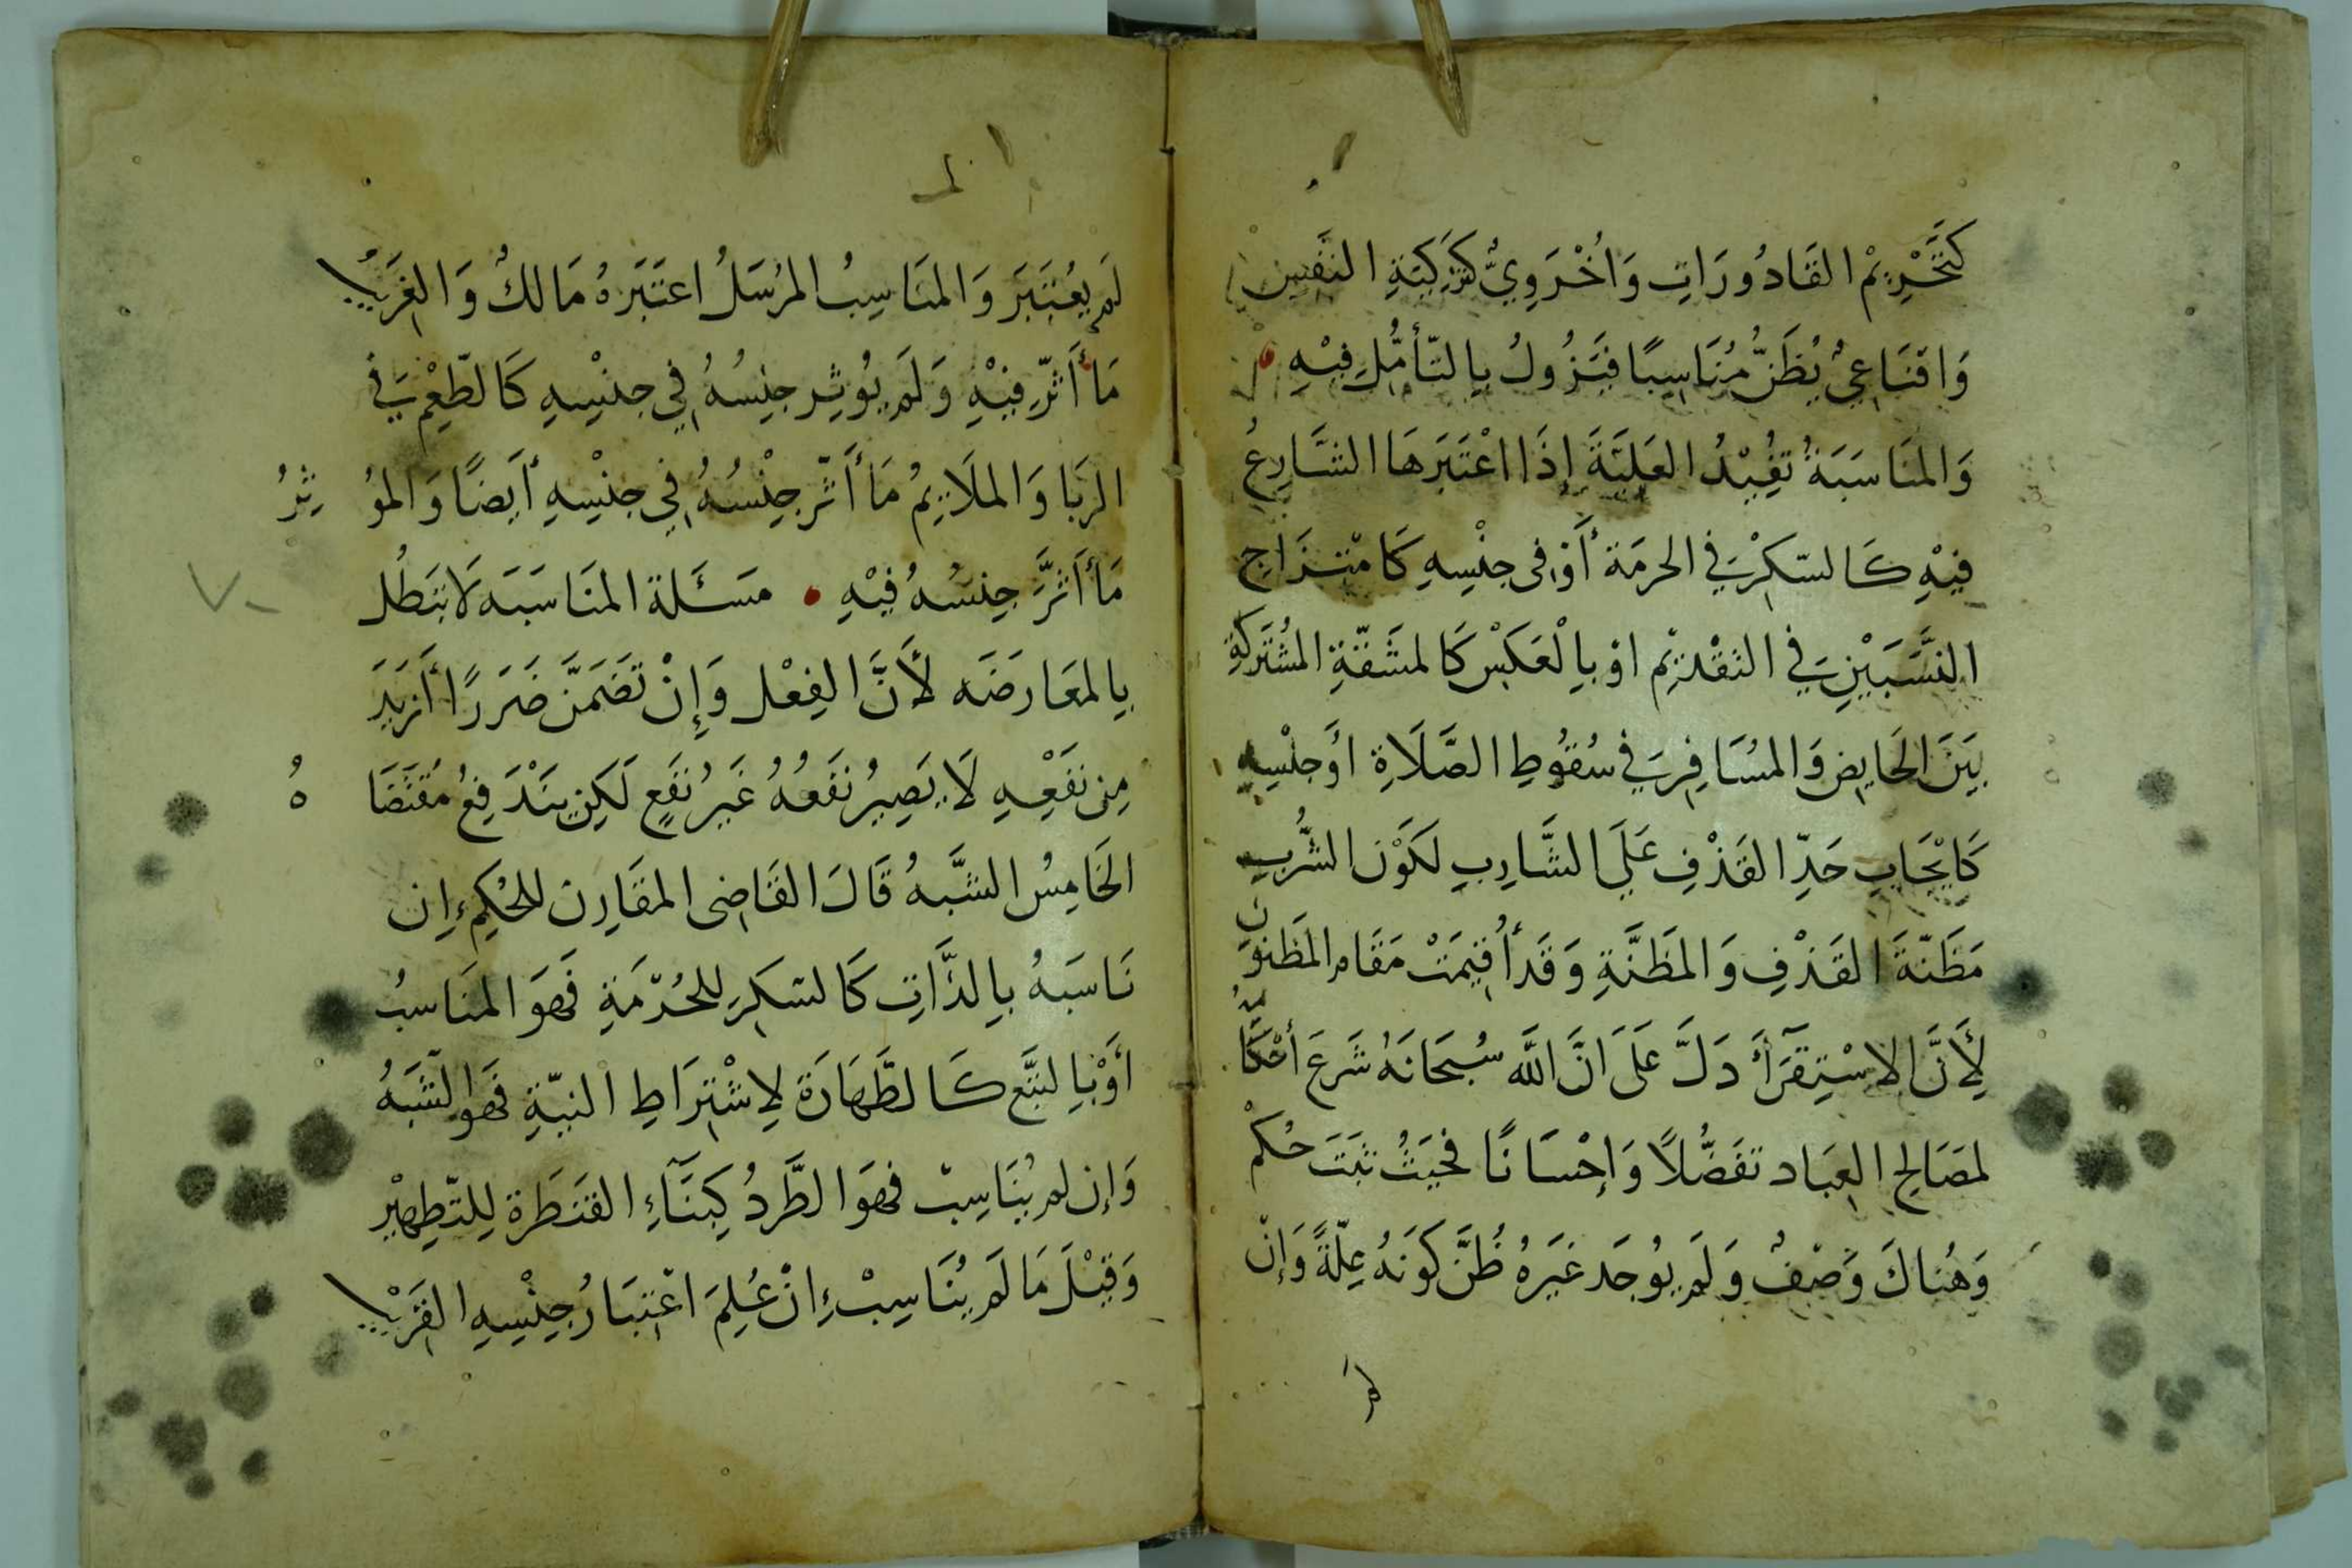 كَتَحْرِيْمِ القَادُورَاتِ وَاُخْرَوِيٌّ كَتَزْكِيَةِ النَفِسِ
وَاقنَاعِيٌ يُظَنُّ مُنَاسِبًا فيَزُولُ بِالتّأمُّلِ فِيْهِ
وَالمنَاسَبَةُ تفُيْدُ العَليَّةَ إِذَا اعْتَبَرَهَا الشَّارِعُ
فِيْهِ كَالسّكِرْ فِي الحرمَة أَوْ فِى جِنْسِهِ كَامْتِزَاجِ
النَّسَبَيْنِ فِي التقْدِيْمِ اوْ بِالْعَكْسِ كَالمشَقّةِ المُشْتَرَكَةِ
بَيَنَ الحَايِضِ وَالمسُافِرِ فِي سُقُوطِ الصَّلَاةِ أوَجِنْسِهِ
كَايْجَابِ حَدِّ القَذْفِ عَلَي الشَّارِبِ لكَوْنِ الشُّربِ
مَظَنّةَ القَذْفِ وَالمظَنَّةِ وَقَدأُقِيمَتْ مَقَام المَظنوُنِ
لِأَنَّ الاسْتِقرَآَ دَلَّ عَلَى انَّ اللَّه سُبحَانَهُ شَرعَ أحْكَامًا
لمصَالِحِ العِبَاد تفَضُّلاً وَإحْسَانًا فحَيَثُ ثبَتَ حُكمْ
وَهُنَاكَ وَصْفٌ وَلَم يوُجَد غَيَرهُ ظُنَّ كوَنَهُ عِلّةً وَإنْ
لَم يعُتَبَر وَالمنَاسِبُ المرُسَلُ اعتَبَرهُ مَالكٌ وَالغَريبُ
مَا أَثّر فِيْهِ وَلَم يُوثِر جِنِسُهُ فِي جِنْسِهِ كَالطّعِمْ فِي
الرِبَا وَالملَايِمُ مَا أَثّر جِنْسُهُ فِي جِنْسِهِ أيَضًا وَالموُثِرُ
مَا أَثرَّ جِنسُهُ فِيْهِ مسَئَلة المنَاسَبَه لَا تبَطُل
بِالمعَارضَه لأَنَّ الفِعْل وَإِنْ تضَمَنَّ ضَررًا أَزيَدَ
مِن نفَعِْهِ لَا يَصِيرُ نفَعُهُ غَيرُ نفَعٍ لَكِن يَنَدْفِعُ مُقتَضَاهُ
الخَامِسُ الشَّبهُ قَالَ القَاضِى المقَارِن للحُكِم إن
نَاسَبهُ بِالذَّاتِ كَالسكِرِ للحُرْمَةِ فَهوَ المنَاسبُ
أوَْ بِالتبَّع كَالطَّهَارَة لِاشْتِرَاطِ النيّةِ فهَو الشَبَهُ
وَإن لم يُنَاسِبْ فهوَ الطَّردُ كِبنَآءِ القنَطَرة لِلتّطِهيْرِ
وَقيْلَ مَا لَم يُنَاسِبْ إِنْ عُلِمَ اعْتبَارُ جِنْسِهِ القَرْيبِ